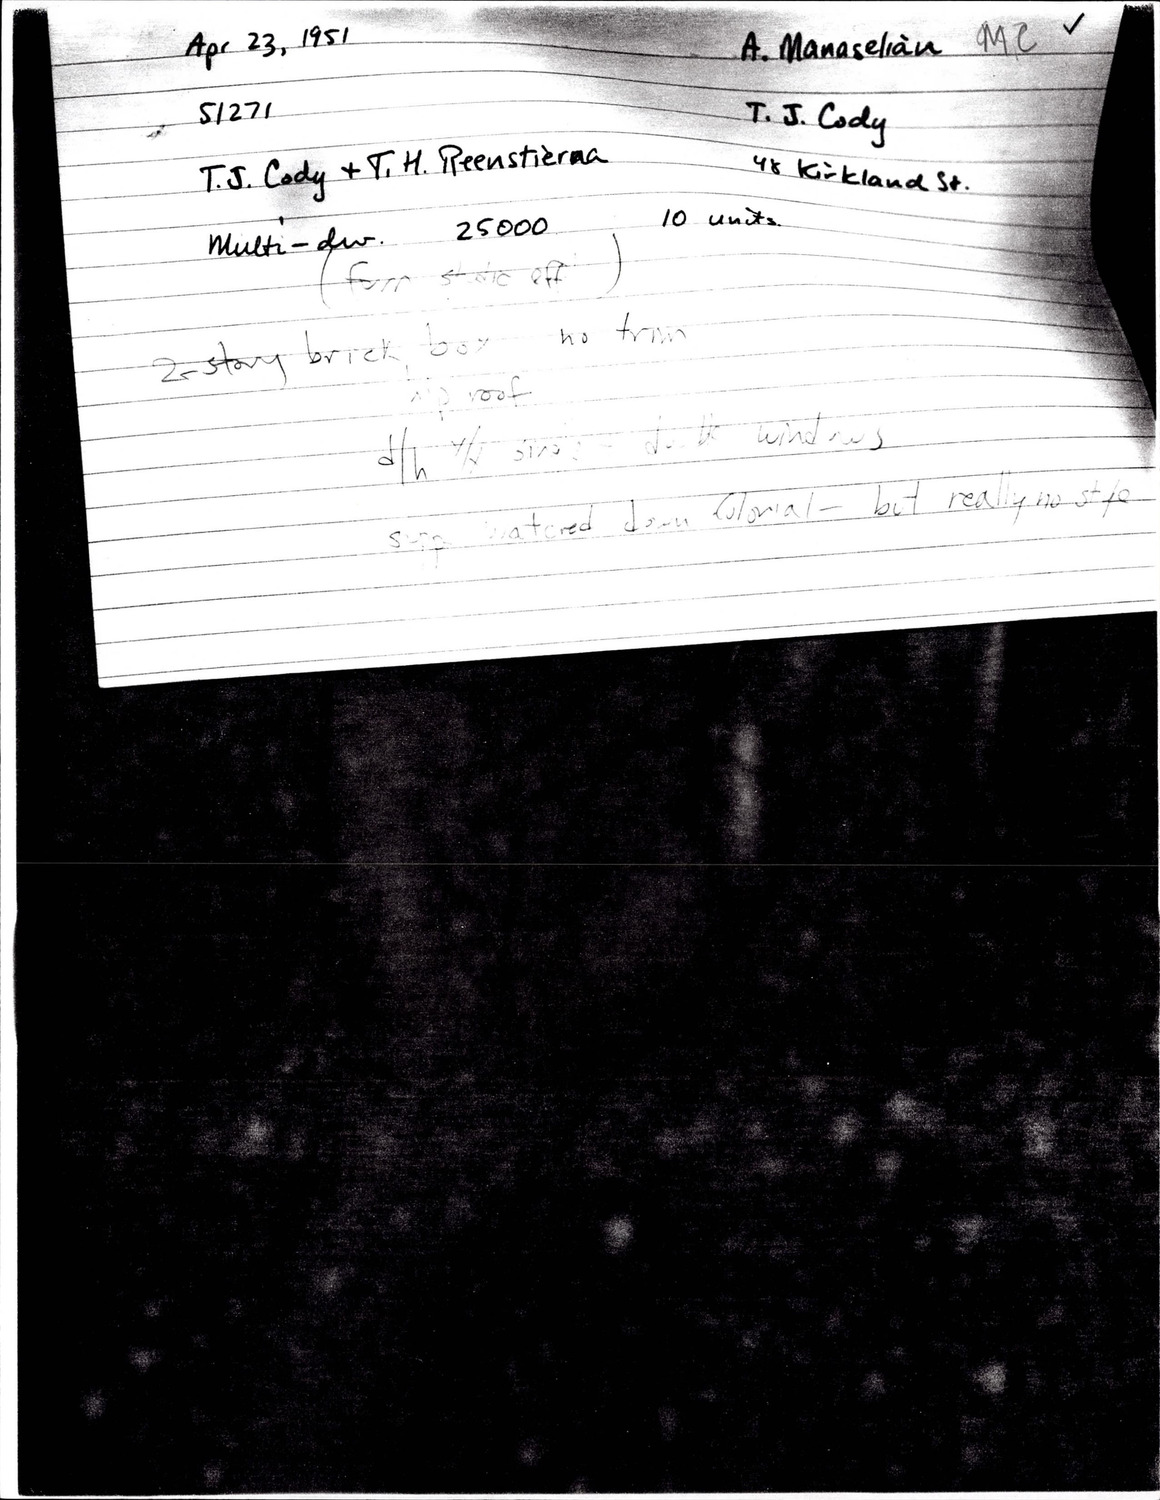 Apr 23, 1951 A. Manaselian MC ✓
51271 T. J. Cody
T.J. Cody + T. H. Reenstierna 48 Kirkland St.
Multi-dw. 25000 10 units.
( eff )
2-story brick box no trim
hip roof
d/h windows
watered down Colonial - but really no style